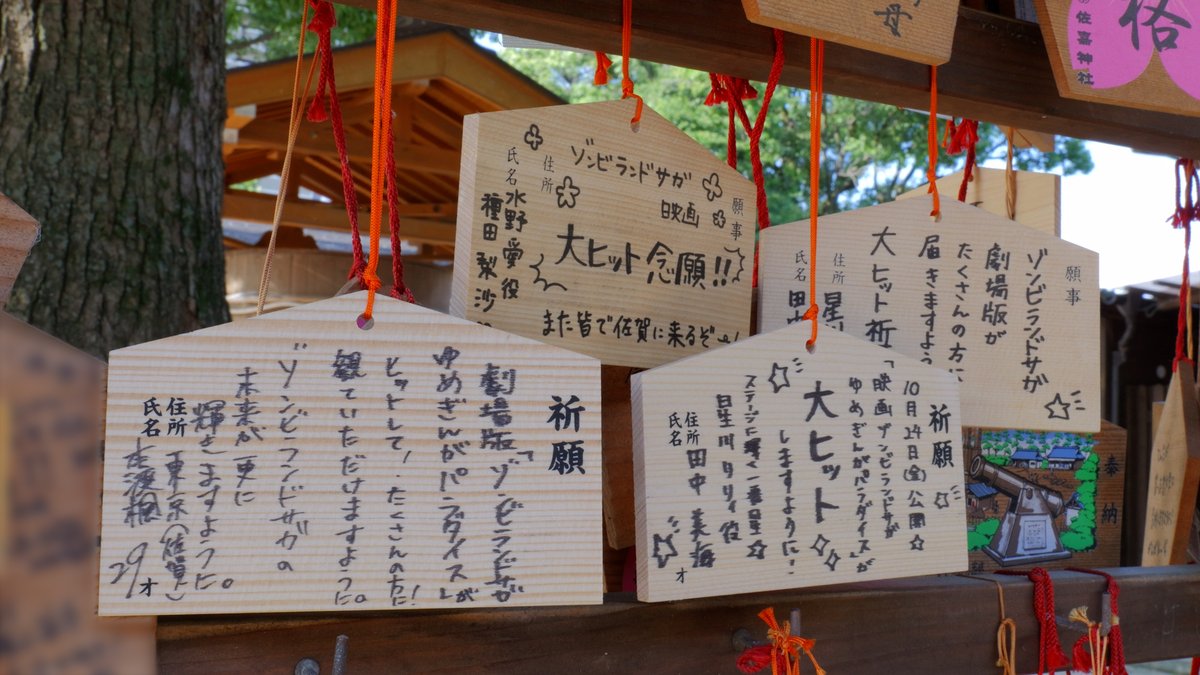 母
俗
佐嘉神社
願事
ゾンビランドサガ
映画
大ヒット念願!!
また皆で佐賀に来るぞー!
住所
水野愛役
氏名
種田梨沙
願事
ゾンビランドサガ
劇場版が
たくさんの方に
届きますよう
大ヒット祈
住所 星
氏名 田
祈願
劇場版「ゾンビランドサガ
ゆめぎんがパラダイス」が
ヒットして、たくさんの方に
観ていただけますように。
ゾンビランドサガの
未来が更に
輝きますように。
住所 東京(佐賀)
氏名
29才
祈願
10月24日(金)公開☆
「映画ゾンビランドサガ
ゆめぎんがパラダイス」が
大ヒット
しますように!
ステージに輝く一番星☆
星川リリィ役
住所
氏名
田中美海
才
奉納